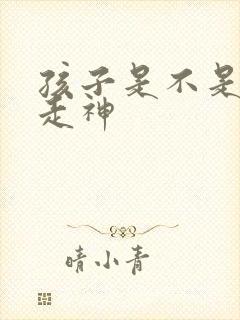 孩子是不是
走神
晴小青